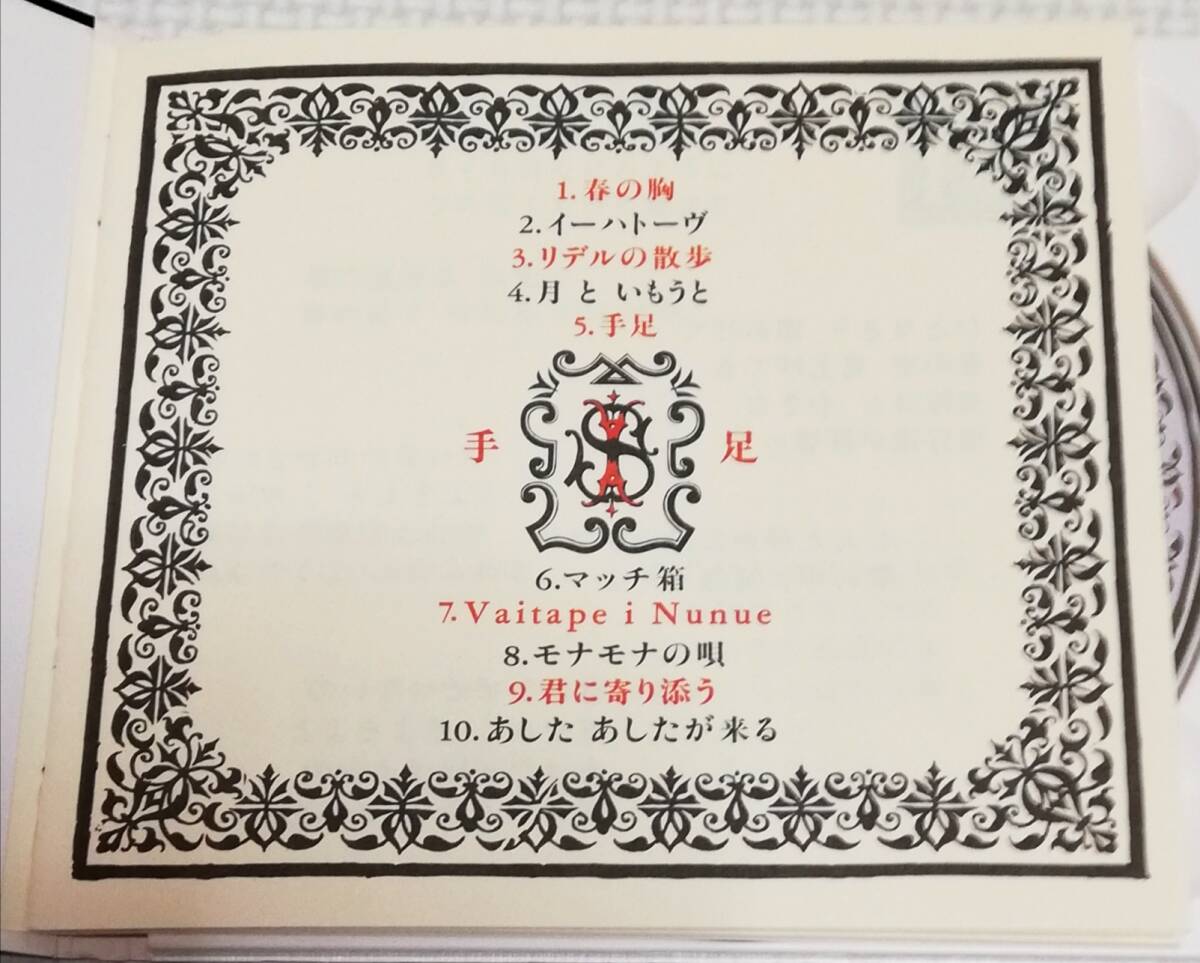 1. 春の胸
2. イーハトーヴ
3. リデルの散歩
4. 月 と いもうと
5. 手足
手 足
6. マッチ箱
7. Vaitape i Nunue
8. モナモナの唄
9. 君に寄り添う
10. あした あしたが来る